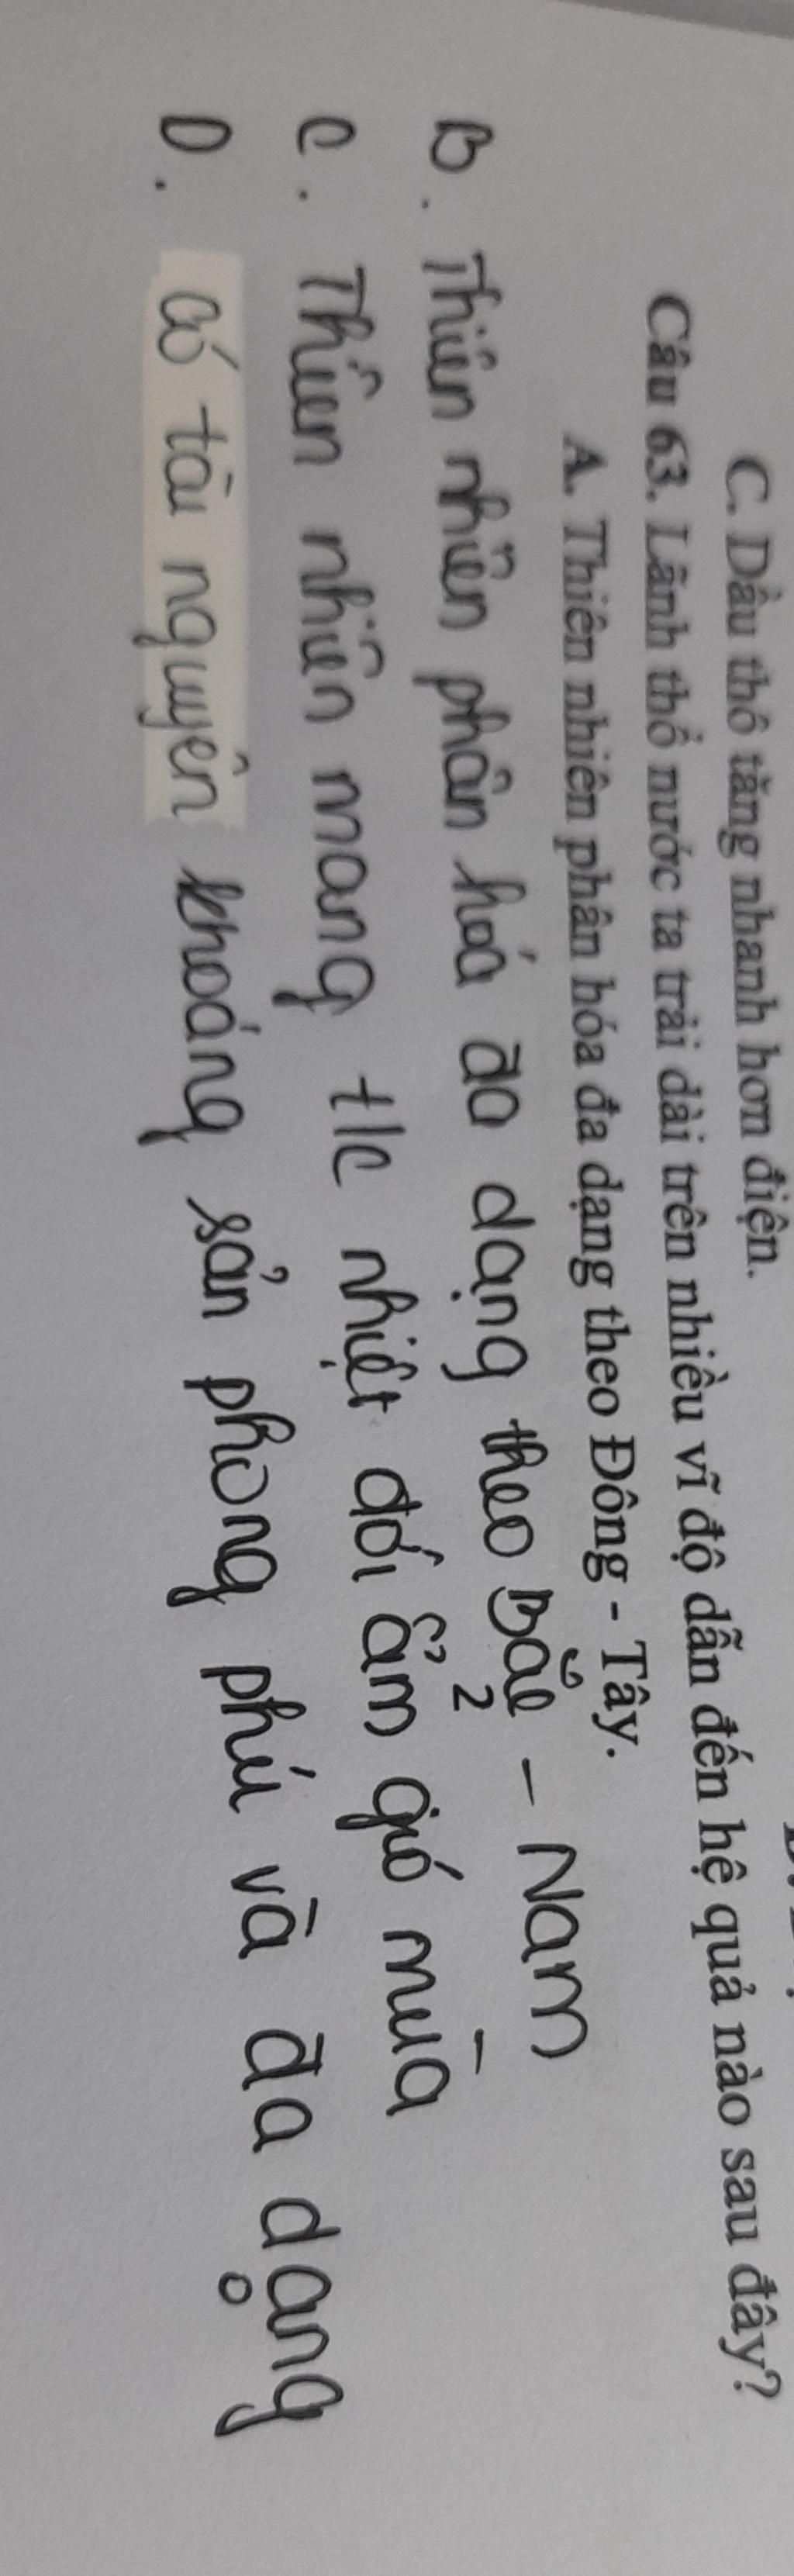 C. Dầu thô tăng nhanh hơn điện.
Câu 63. Lãnh thổ nước ta trải dài trên nhiều vĩ độ dẫn đến hệ quả nào sau đây?
A. Thiên nhiên phân hóa đa dạng theo Đông - Tây.
B. Thiên nhiên phân hoá đa dạng theo Bắc - Nam
C. Thiên nhiên mang t/c nhiệt đới ẩm gió mùa
D. Có tài nguyên khoáng sản phong phú và đa dạng